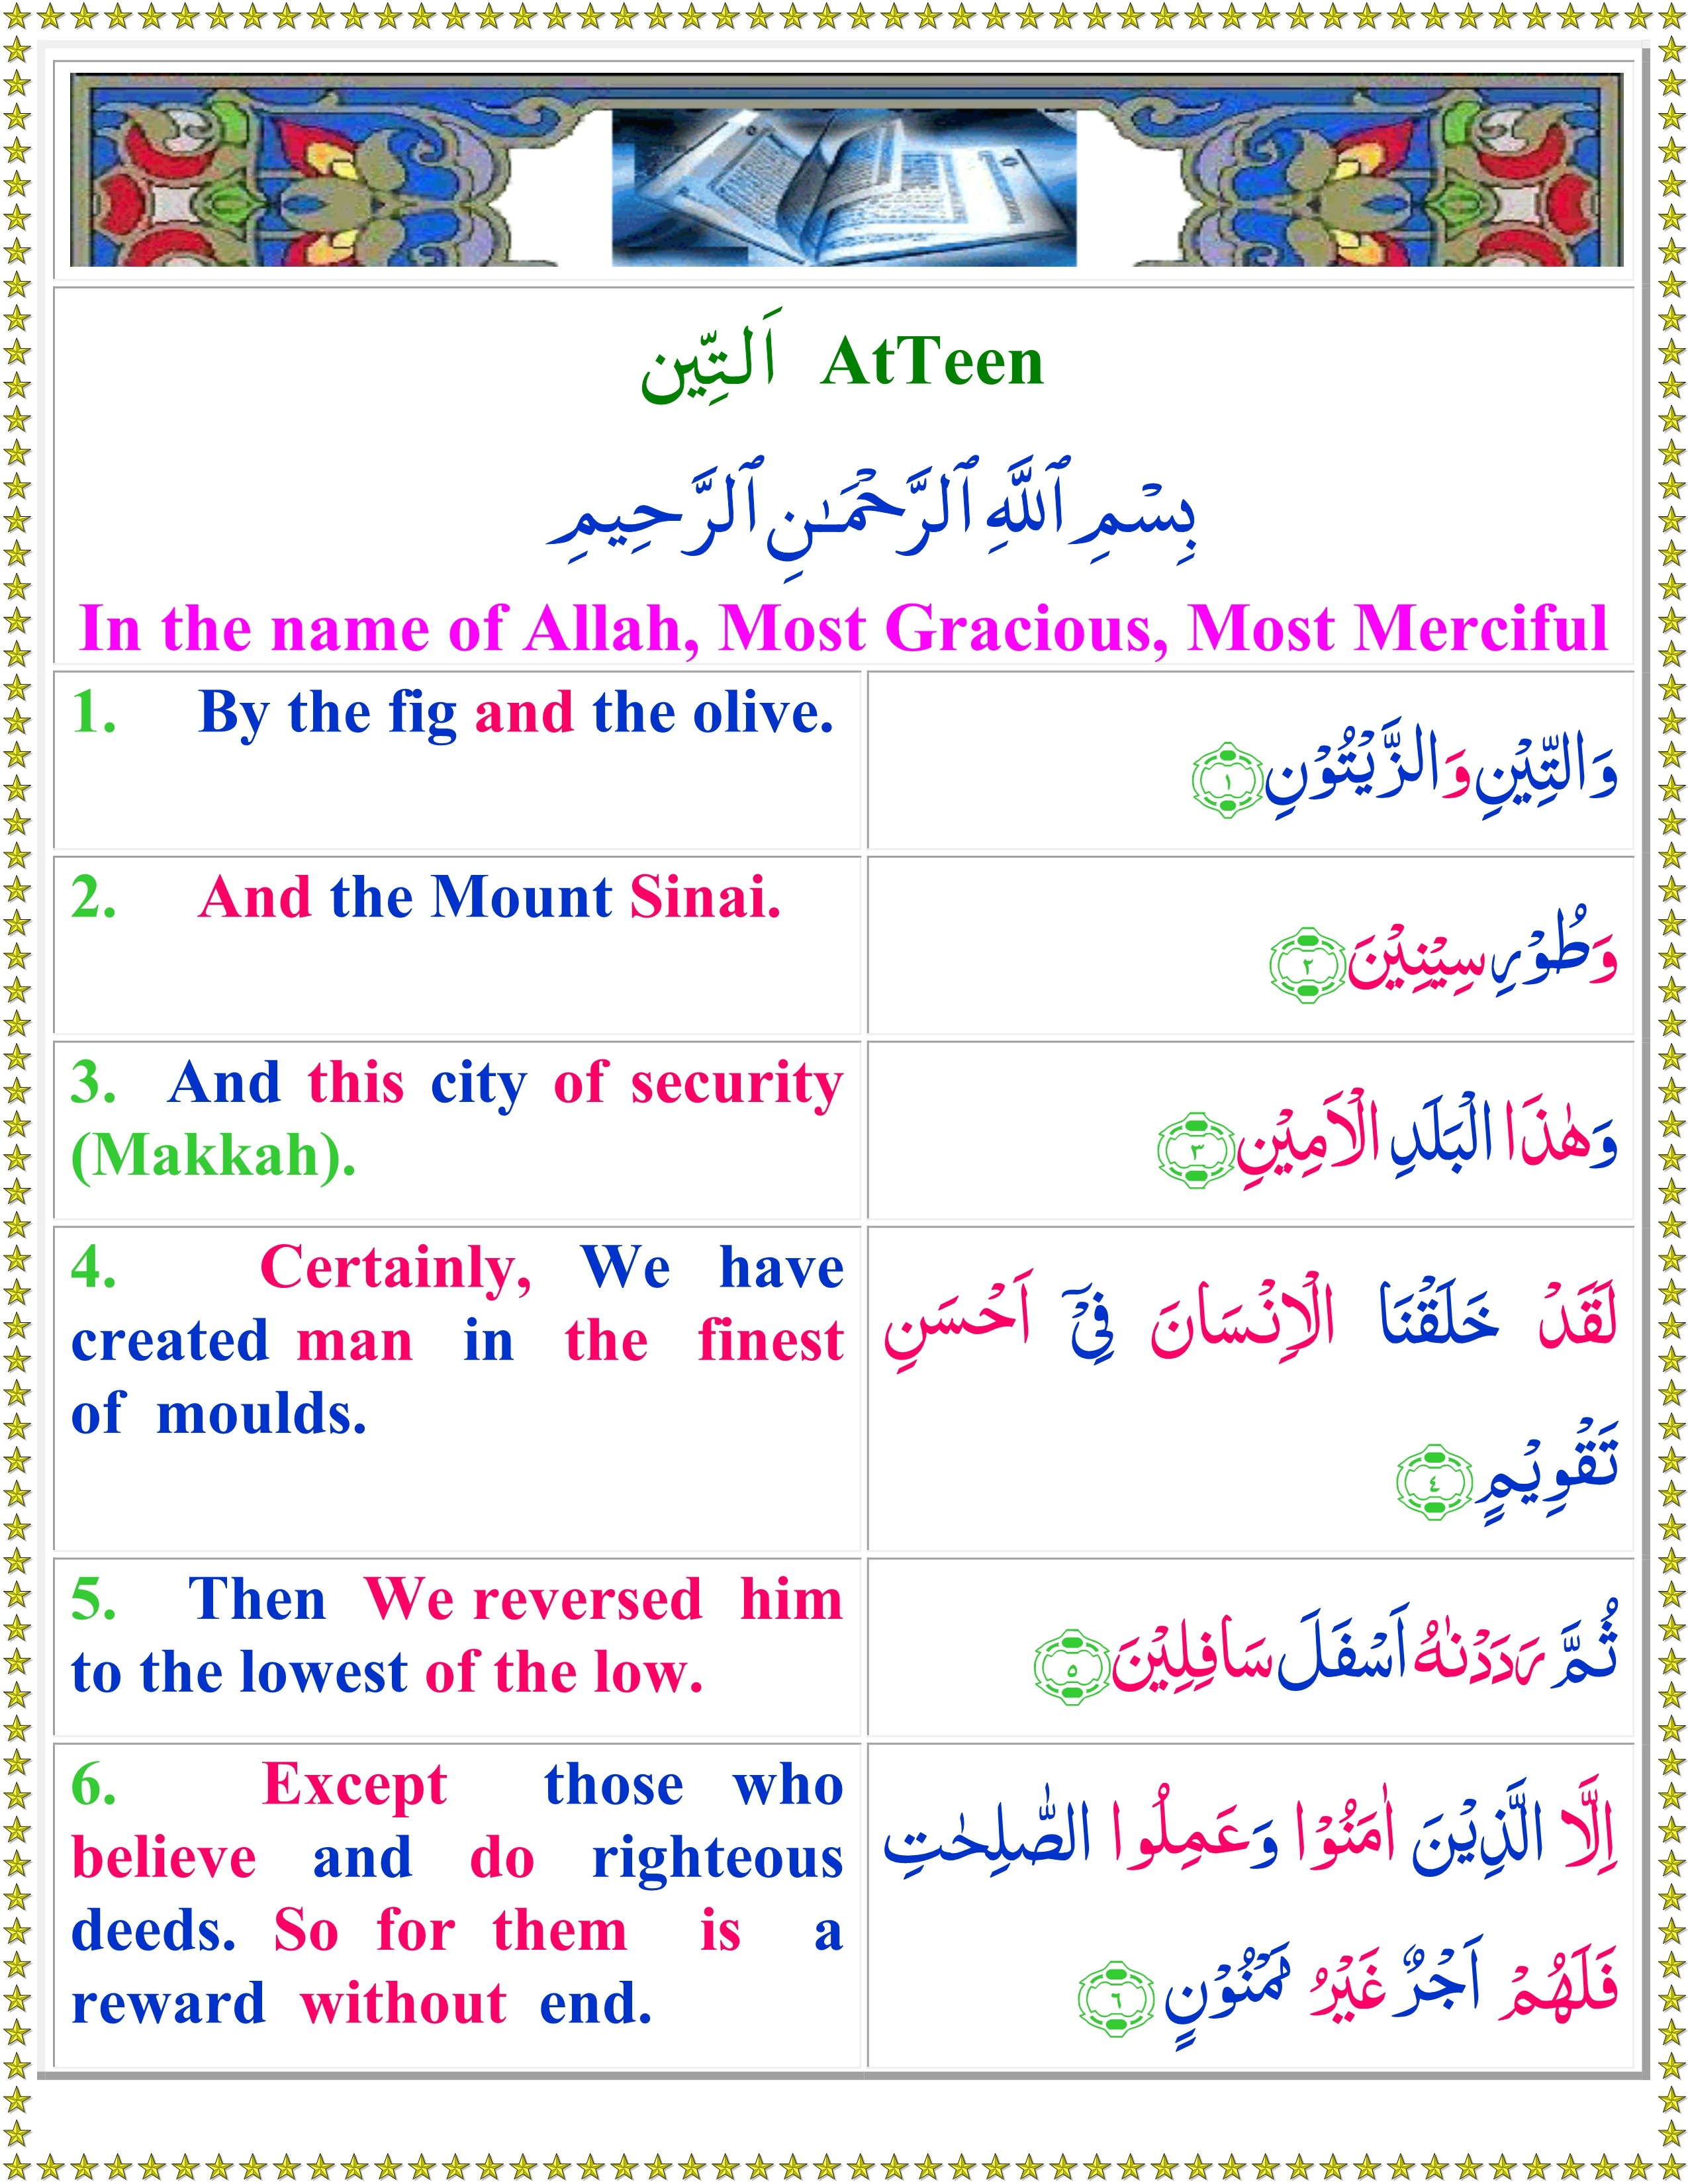 اَلتِّين AtTeen
بِسْمِ ٱللَّهِ ٱلرَّحْمَـٰنِ ٱلرَّحِيمِ
In the name of Allah, Most Gracious, Most Merciful
1. By the fig and the olive.
وَالتِّيْنِ وَالزَّيْتُوْنِ ۝١
2. And the Mount Sinai.
وَطُوْرِ سِيْنِيْنَ ۝٢
3. And this city of security
(Makkah).
وَهٰذَا الْبَلَدِ الْاَمِيْنِ ۝٣
4. Certainly, We have
created man in the finest
of moulds.
لَقَدْ خَلَقْنَا الْاِنْسَانَ فِىْۤ اَحْسَنِ
تَقْوِيْمٍ ۝٤
5. Then We reversed him
to the lowest of the low.
ثُمَّ رَدَدْنٰهُ اَسْفَلَ سَافِلِيْنَ ۝٥
6. Except those who
believe and do righteous
deeds. So for them is a
reward without end.
اِلَّا الَّذِيْنَ اٰمَنُوْا وَعَمِلُوا الصّٰلِحٰتِ
فَلَهُمْ اَجْرٌ غَيْرُ مَمْنُوْنٍ ۝٦